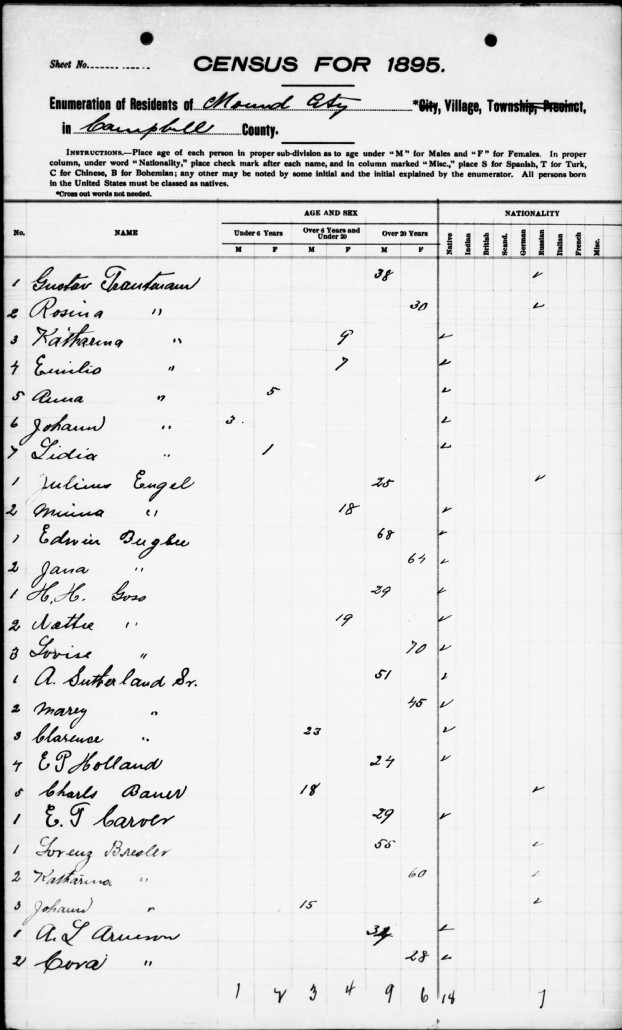 Sheet No.
CENSUS FOR 1895.
Enumeration of Residents of Mound City *City, Village, Township, Precinct,
in Campbell County.
INSTRUCTIONS.—Place age of each person in proper sub-division as to age under "M" for Males and "F" for Females. In proper
column, under word "Nationality," place check mark after each name, and in column marked "Misc.," place S for Spanish, T for Turk,
C for Chinese, B for Bohemian; any other may be noted by some initial and the initial explained by the enumerator. All persons born
in the United States must be classed as natives.
*Cross out words not needed.
AGE AND SEX NATIONALITY
No. NAME Under 6 Years Over 6 Years and Under 20 Over 20 Years Native Indian British Scand. German Russian Italian French Misc.
M F M F M F
1 Gustav Trautmann 38 ✓
2 Rosina " 30 ✓
3 Katharina " 9 ✓
4 Emilio " 7 ✓
5 Anna " 5 ✓
6 Johann " 3. ✓
7 Lidia " 1 ✓
1 Julius Engel 25 ✓
2 Minna " 18 ✓
1 Edwin Bugbee 68 ✓
2 Jana " 64 ✓
1 H. H. Goss 29 ✓
2 Nattie " 19 ✓
3 Lovise " 70 ✓
1 A. Sutherland Sr. 51 ✓
2 Marey " 45 ✓
3 Clarence " 23 ✓
4 E P Holland 24 ✓
5 Charls Bauer 18 ✓
1 E. T Carver 29 ✓
1 Lorenz Bresler 55 ✓
2 Katharina " 60 ✓
3 Johann " 15 ✓
1 A. L Arneson ✓
2 Cora " 28 ✓
1 2 3 4 9 6 18 7